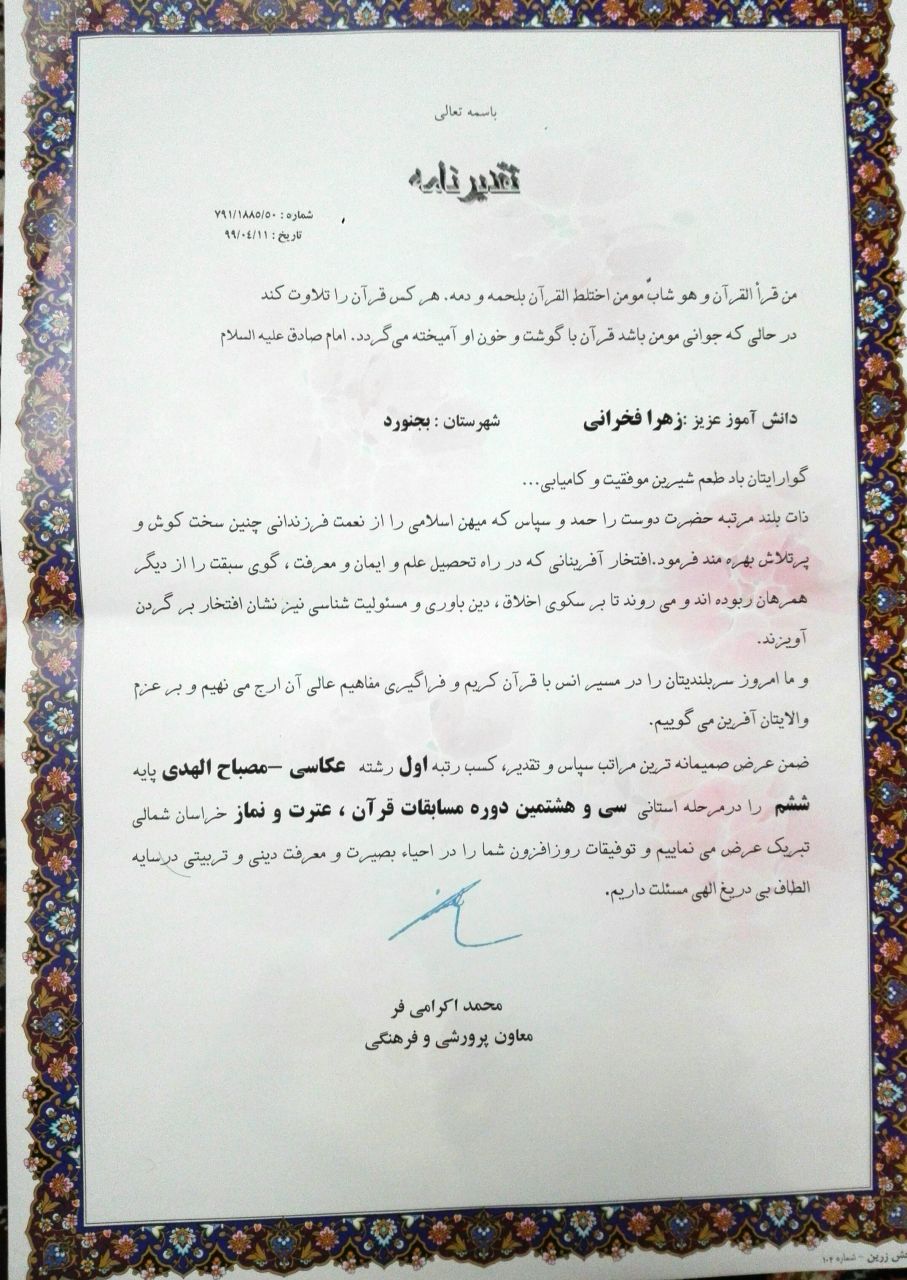 باسمه تعالی
تقدیرنامه
شماره : ۷۹۱/۱۸۸۵/۵۰
تاریخ : ۹۹/۰۴/۱۱
من قرأ القرآن و هو شابٌ مومن اختلط القرآن بلحمه و دمه. هر کس قرآن را تلاوت کند
در حالی که جوانی مومن باشد قرآن با گوشت و خون او آمیخته می‌گردد. امام صادق علیه السلام
دانش آموز عزیز :زهرا فخرانی شهرستان : بجنورد
گوارایتان باد طعم شیرین موفقیت و کامیابی...
ذات بلند مرتبه حضرت دوست را حمد و سپاس که میهن اسلامی را از نعمت فرزندانی چنین سخت کوش و
پرتلاش بهره مند فرمود.افتخار آفرینانی که در راه تحصیل علم و ایمان و معرفت ، گوی سبقت را از دیگر
همرهان ربوده اند و می روند تا بر سکوی اخلاق ، دین باوری و مسئولیت شناسی نیز نشان افتخار بر گردن
آویزند.
و ما امروز سربلندیتان را در مسیر انس با قرآن کریم و فراگیری مفاهیم عالی آن ارج می نهیم و بر عزم
والایتان آفرین می گوییم.
ضمن عرض صمیمانه ترین مراتب سپاس و تقدیر، کسب رتبه اول رشته عکاسی –مصباح الهدی پایه
ششم را درمرحله استانی سی و هشتمین دوره مسابقات قرآن ، عترت و نماز خراسان شمالی
تبریک عرض می نماییم و توفیقات روزافزون شما را در احیاء بصیرت و معرفت دینی و تربیتی در سایه
الطاف بی دریغ الهی مسئلت داریم.
محمد اکرامی فر
معاون پرورشی و فرهنگی
زرین - شماره ۱۰۲